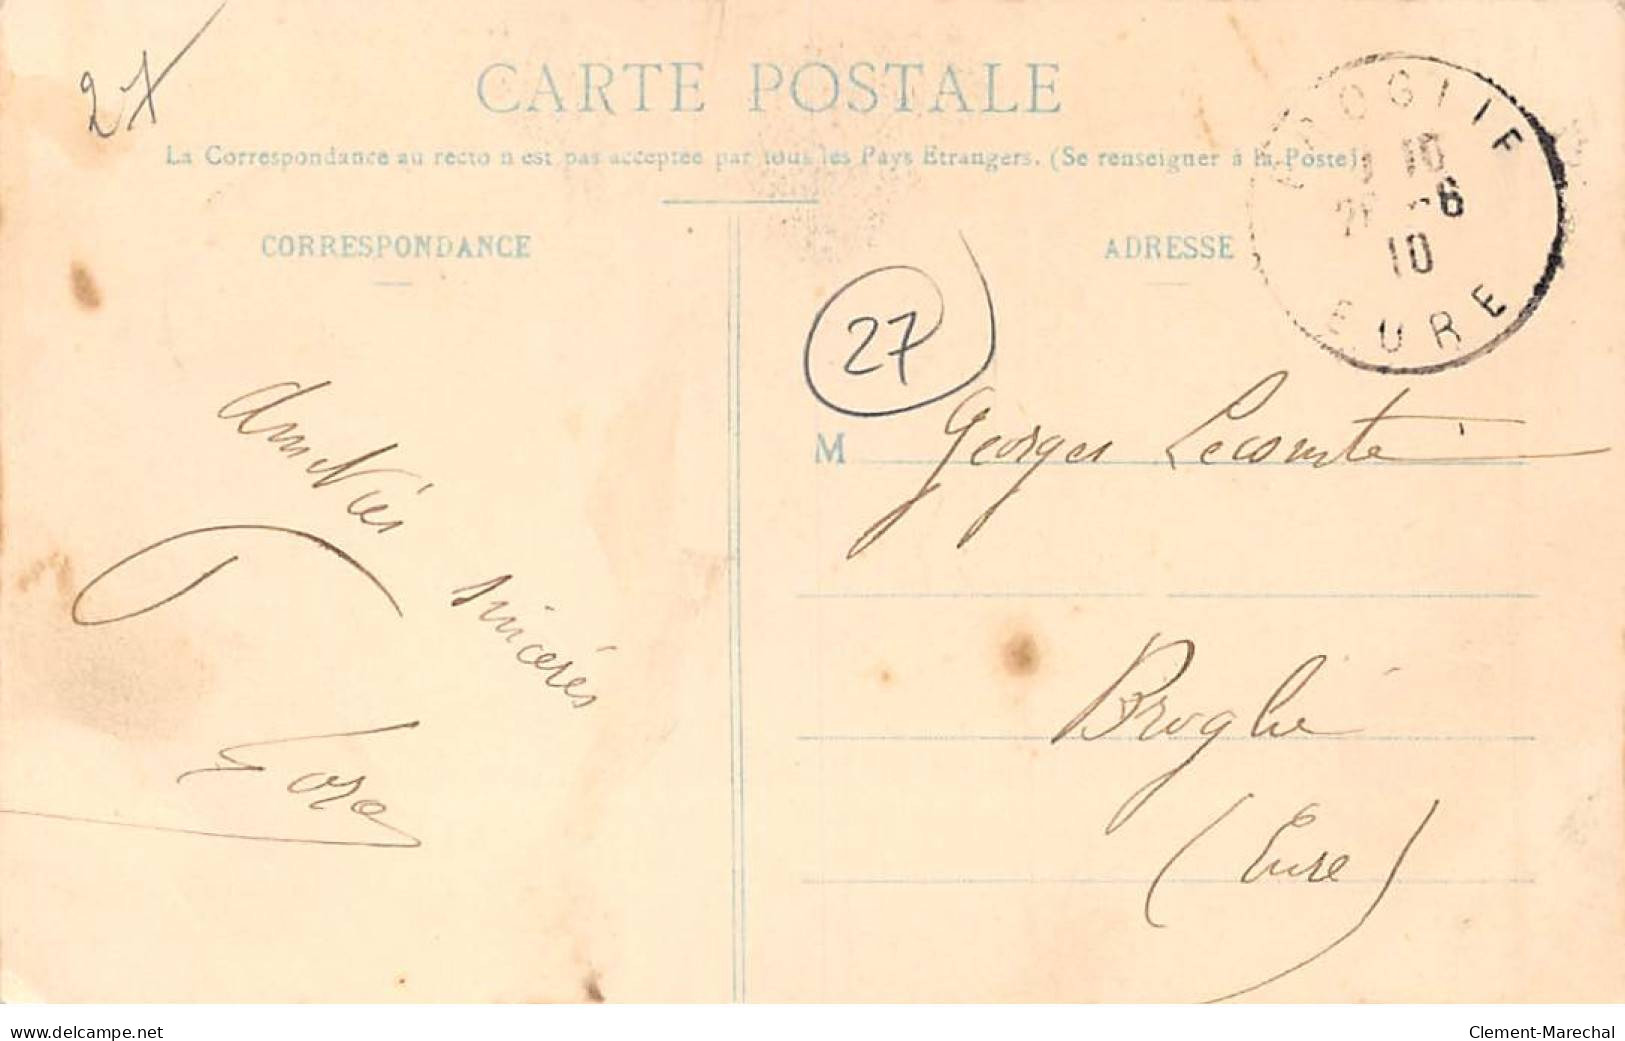 27
CARTE POSTALE
La Correspondance au recto n'est pas acceptée par tous les Pays Etrangers. (Se renseigner à la Poste)
BROGLIE
10
6
10
EURE
CORRESPONDANCE
ADRESSE
27
Amitiés
sincères
M Georges Lecomte
Broglie
(Eure)
www.delcampe.net
Clement-Marechal